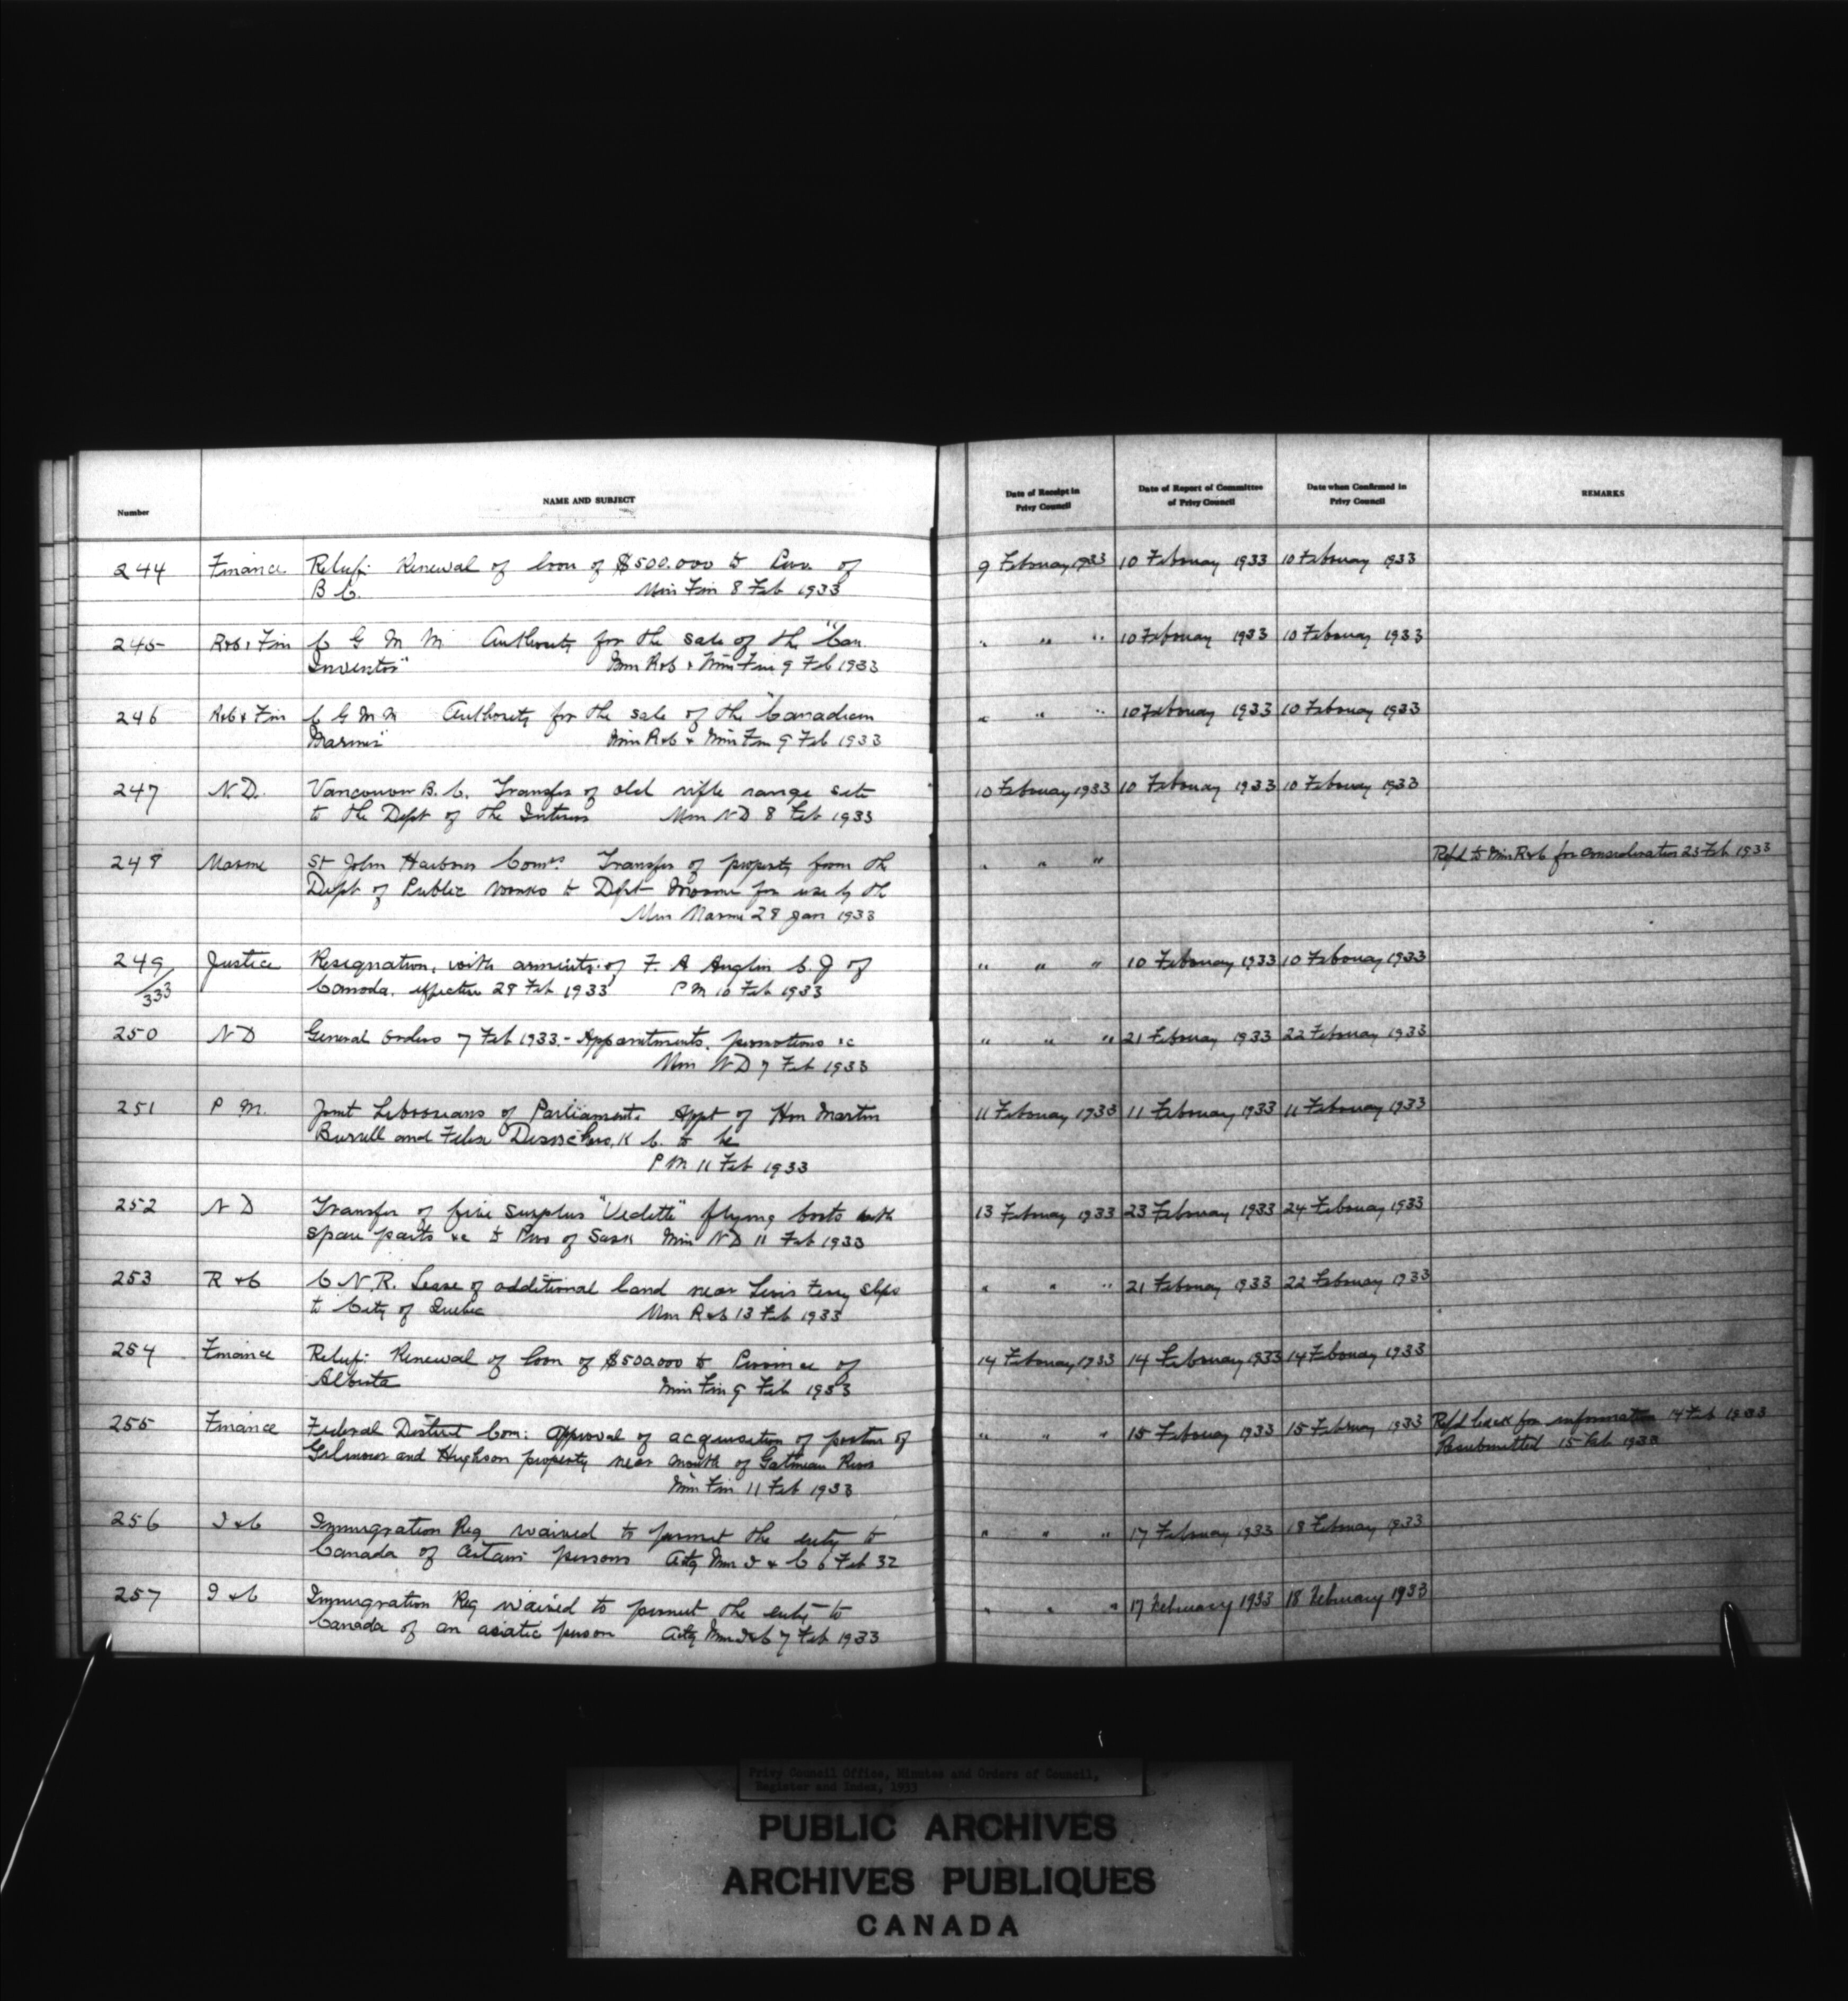 Number
NAME AND SUBJECT
Date of Receipt in Privy Council
Date of Report of Committee of Privy Council
Date when Confirmed in Privy Council
REMARKS
244 Finance Relief: Renewal of loan of $500.000 to Prov. of 9 February 1933 10 February 1933 10 February 1933
B C. Min Fin 8 Feb 1933
245 R&C & Fin C G M M Authority for the sale of the "Can. " " " 10 February 1933 10 February 1933
Inventor" Min R&C & Min Fin 9 Feb 1933
246 R&C & Fin C G M M Authority for the sale of the "Canadian " " " 10 February 1933 10 February 1933
Mariner" Min R&C & Min Fin 9 Feb 1933
247 N.D. Vancouver B.C. Transfer of old rifle range site 10 February 1933 10 February 1933 10 February 1933
to the Dept of the Interior Min ND 8 Feb 1933
248 Marine St John Harbour Comrs. Transfer of property from the " " " Refd to Min R&C for consideration 23 Feb 1933
Dept of Public Works to Dept Marine for use by the
Min Marine 28 Jan 1933
249/333 Justice Resignation, with of F. A Anglin C. J of " " " 10 February 1933 10 February 1933
Canada, effective 28 Feb 1933 P M 10 Feb 1933
250 N D General Orders 7 Feb 1933 - Appointments, promotions &c " " " 21 February 1933 22 February 1933
Min N D 7 Feb 1933
251 P M. Joint Librarians of Parliament. Appt of Hon Martin 11 February 1933 11 February 1933 11 February 1933
Burrell and Felix Desrochers, K C. to be
P M 11 Feb 1933
252 N D Transfer of five surplus "Vedette" flying boats with 13 February 1933 23 February 1933 24 February 1933
spare parts &c to Prov of Sask Min ND 11 Feb 1933
253 R &C C N.R. Lease of additional land near Levis Ferry slips " " " 21 February 1933 22 February 1933
to City of Quebec Min R&C 13 Feb 1933
254 Finance Relief: Renewal of loan of $500.000 to Province of 14 February 1933 14 February 1933 14 February 1933
Alberta Min Fin 9 Feb 1933
255 Finance Federal District Com: Approval of acquisition of portion of " " " 15 February 1933 15 February 1933 Refd back for information 14 Feb 1933
Gilmour and Hughson property near mouth of Gatineau River Resubmitted 15 Feb 1933
Min Fin 11 Feb 1933
256 I &C Immigration Reg waived to permit the entry to " " " 17 February 1933 18 February 1933
Canada of certain persons Actg Min I & C 6 Feb 32
257 I &C Immigration Reg waived to permit the entry to " " " 17 February 1933 18 February 1933
Canada of an asiatic person Actg Min I&C 7 Feb 1933
Privy Council Office, Minutes and Orders of Council,
Register and Index, 1933
PUBLIC ARCHIVES
ARCHIVES PUBLIQUES
CANADA